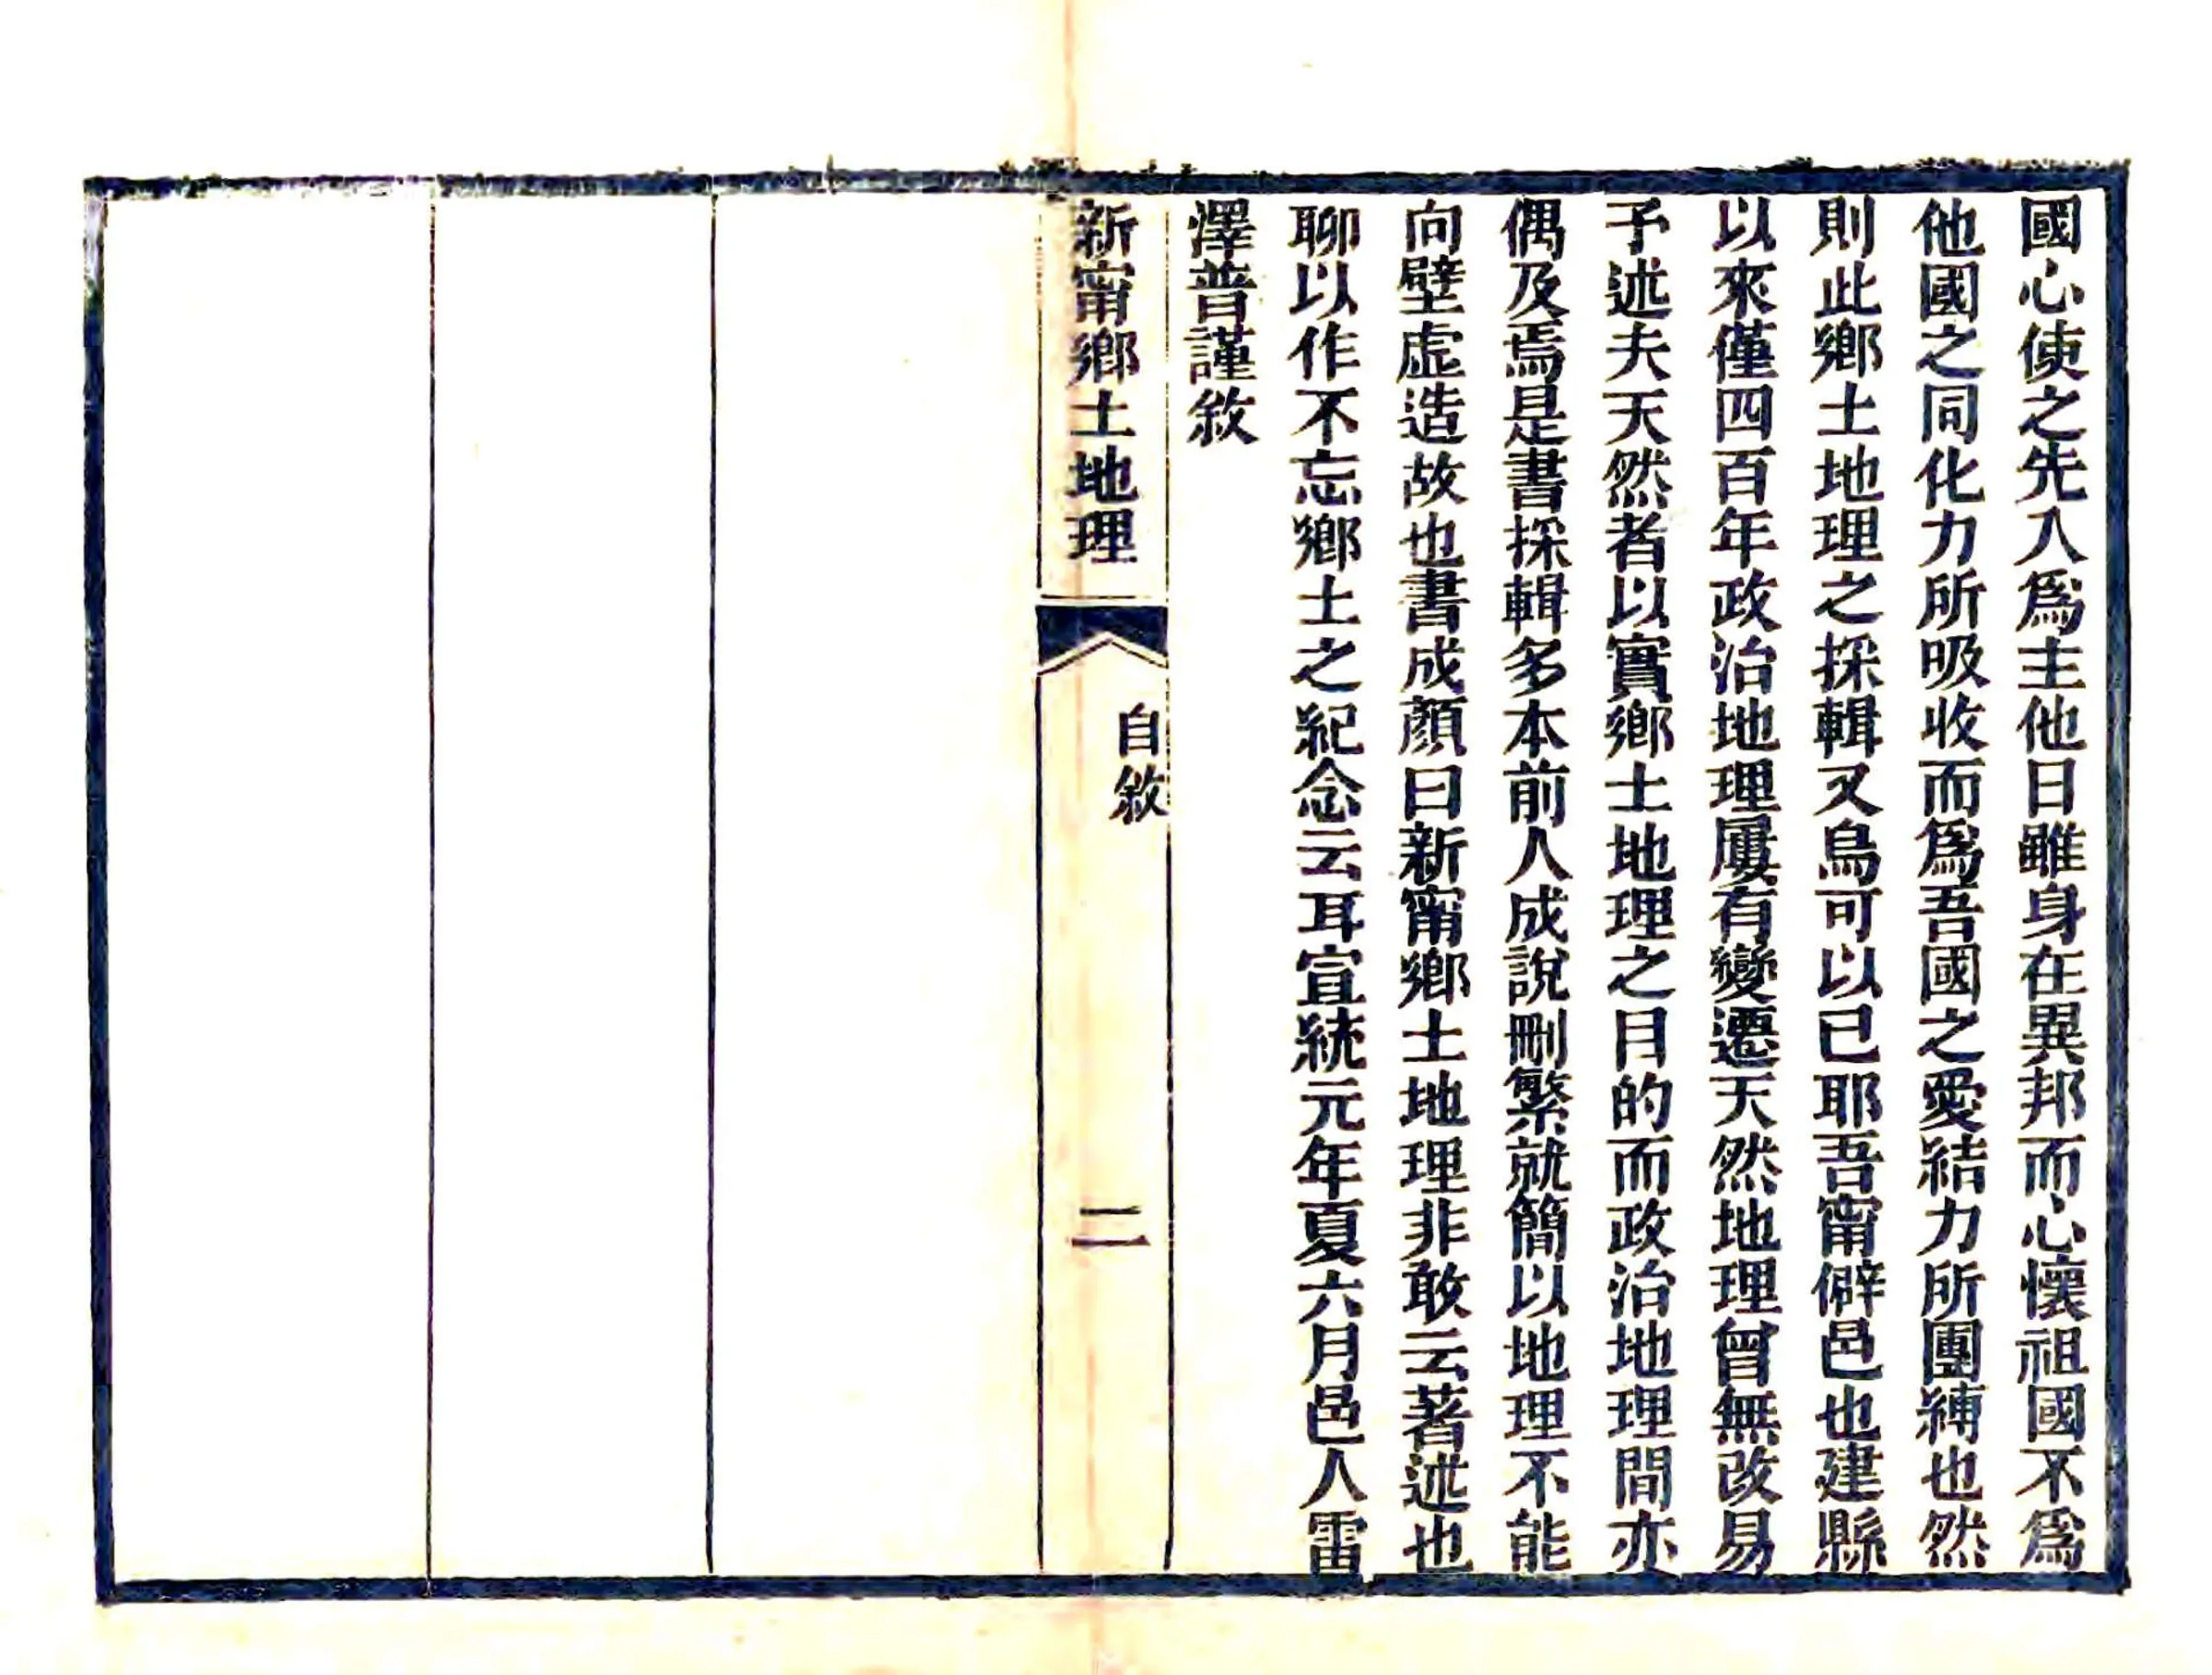 國心使之先入爲主他日雖身在異邦而心懷祖國不爲
他國之同化力所吸收而爲吾國之愛結力所團縛也然
則此鄉土地理之採輯又烏可以已耶吾甯僻邑也建縣
以來僅四百年政治地理屢有變遷天然地理曾無改易
予述夫天然者以實鄉土地理之目的而政治地理間亦
偶及焉是書採輯多本前人成說刪繁就簡以地理不能
向壁虛造故也書成顏曰新甯鄉土地理非敢云著述也
聊以作不忘鄉土之紀念云耳宣統元年夏六月邑人雷
澤普謹敘
新甯鄉土地理
自敘
二